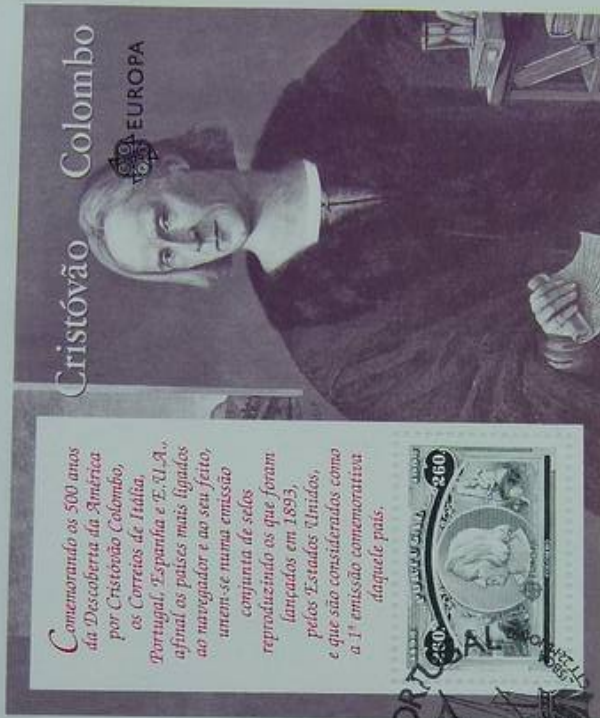 Cristóvão Colombo
EUROPA
Comemorando os 500 anos
da Descoberta da América
por Cristóvão Colombo,
os Correios de Itália,
Portugal, Espanha e E.U.A.,
afinal os países mais ligados
ao navegador e ao seu feito,
unem-se numa emissão
conjunta de selos
reproduzindo os que foram
lançados em 1893,
pelos Estados Unidos,
e que são considerados como
a 1ª emissão comemorativa
daquele país.
PORTUGAL
260 260
PORTUGAL